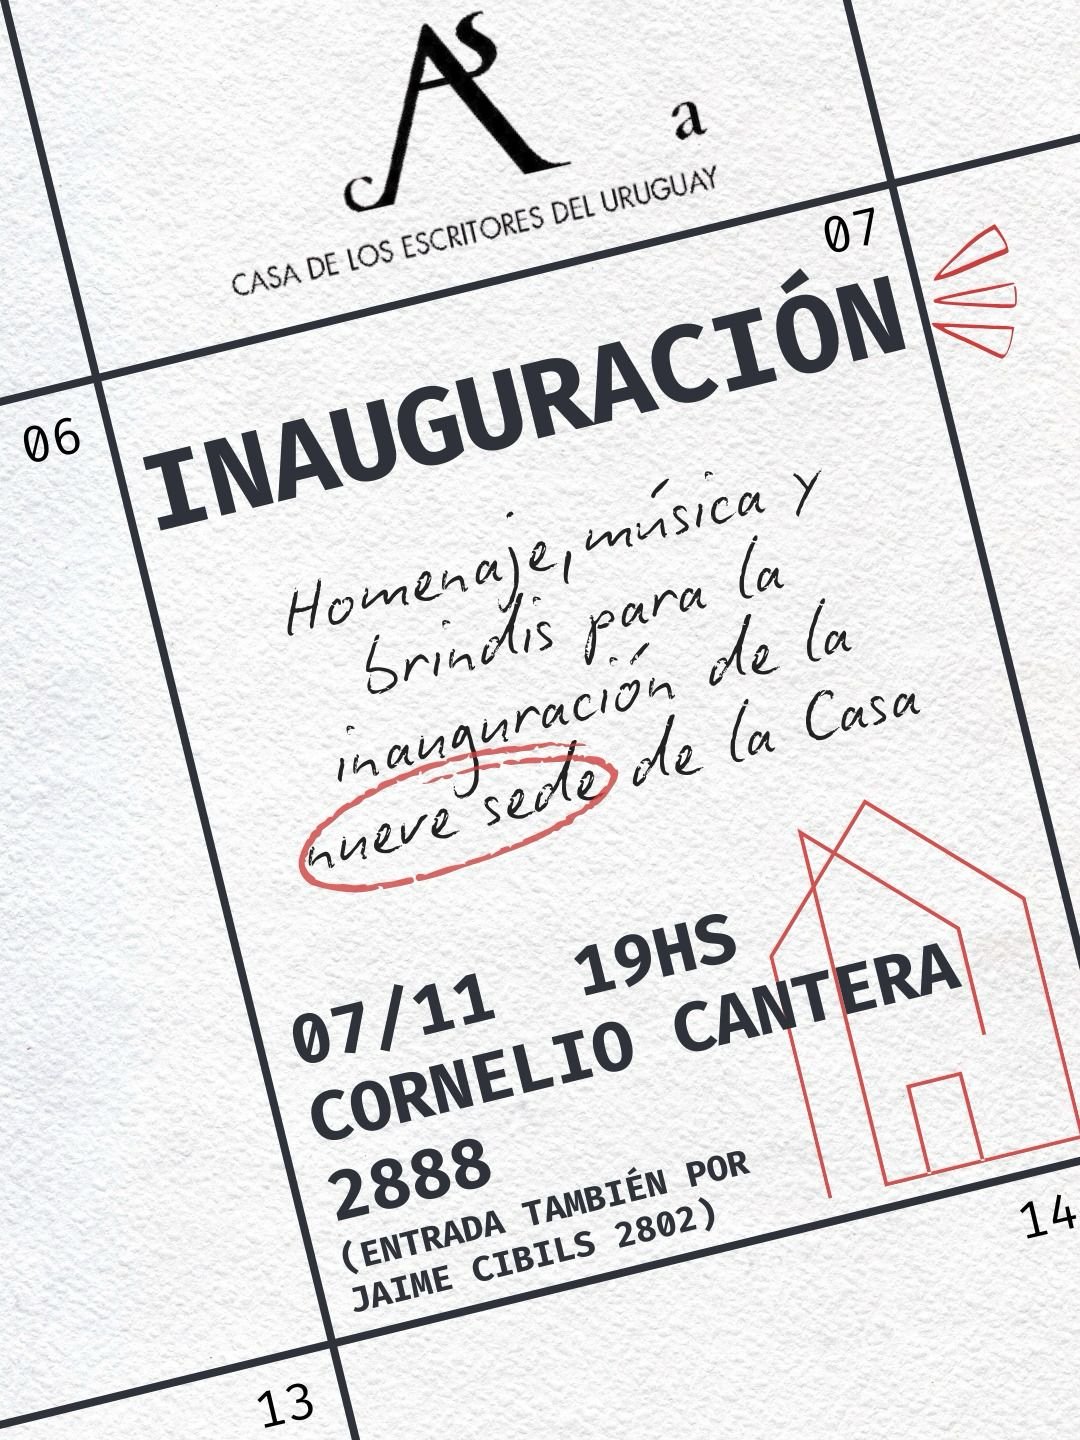 CAsa
CASA DE LOS ESCRITORES DEL URUGUAY
07
INAUGURACIÓN
06
Homenaje, música y
brindis para la
inauguración de la
nueve sede de la Casa
07/11 19HS
CORNELIO CANTERA
2888
(ENTRADA TAMBIÉN POR
JAIME CIBILS 2802)
14
13